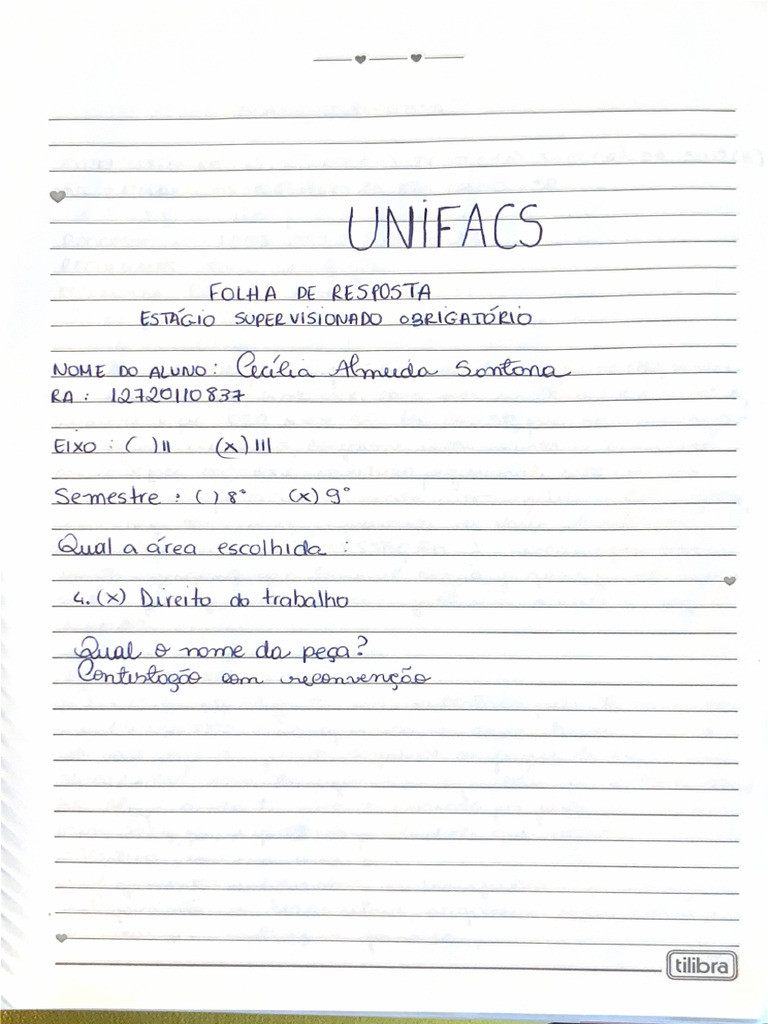 UNIFACS
FOLHA DE RESPOSTA
ESTÁGIO SUPERVISIONADO OBRIGATÓRIO
NOME DO ALUNO: Cecília Almeida Santana
RA: 12720110837
EIXO: ( ) II (x) III
Semestre: ( ) 8° (x) 9°
Qual a área escolhida:
4. (x) Direito do trabalho
Qual o nome da peça?
Contestação com reconvenção
tilibra